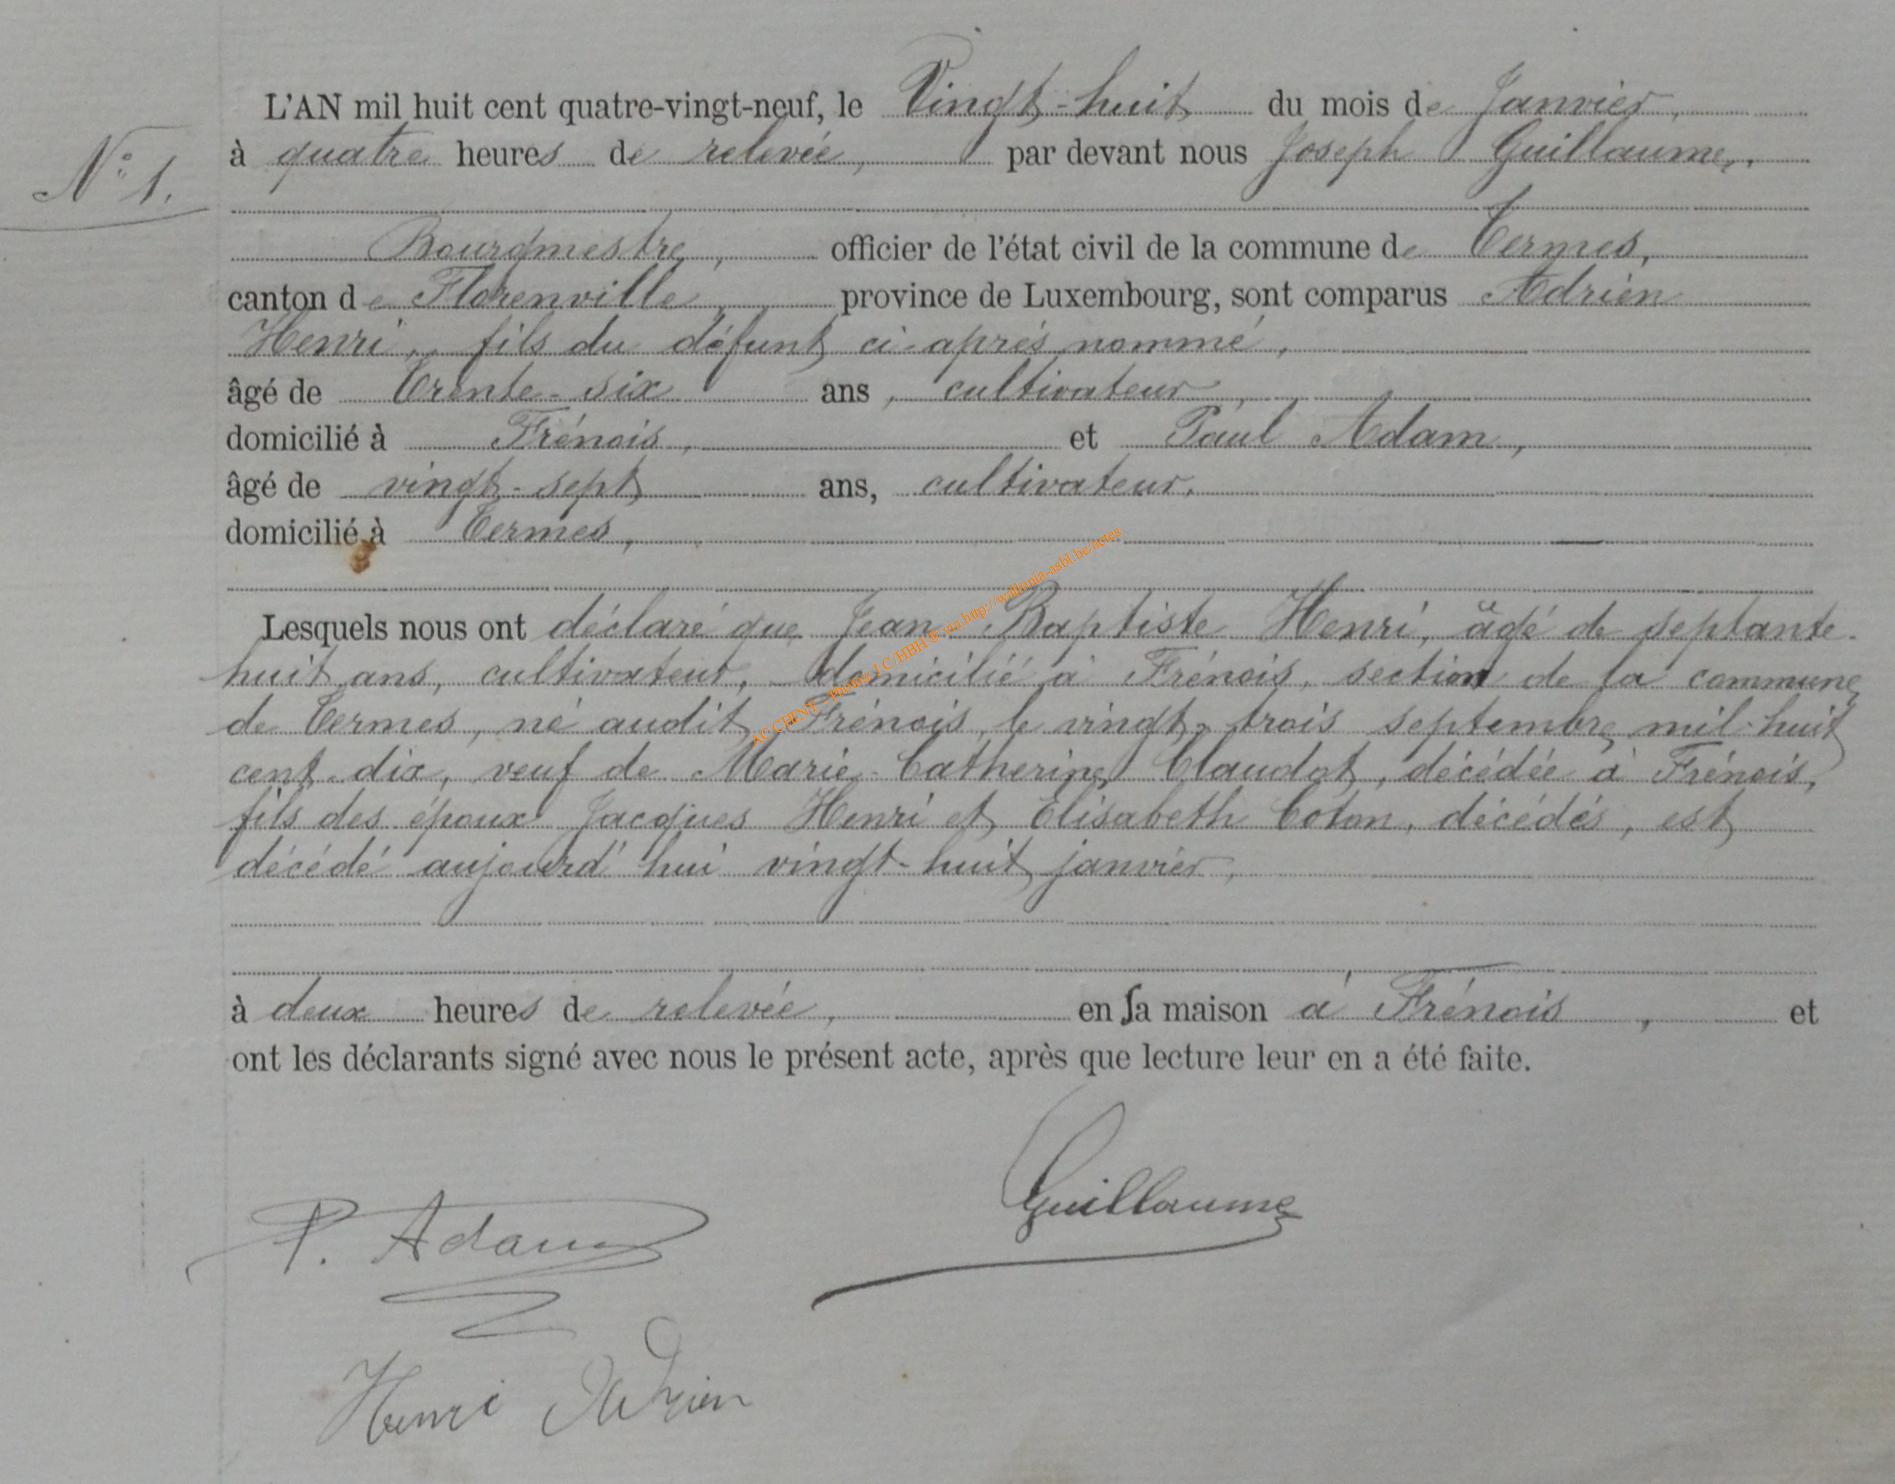 L'AN mil huit cent quatre-vingt-neuf, le Vingt-huit du mois de Janvier,
N° 1.
à quatre heures de relevée, par devant nous Joseph Guillaume,
Bourgmestre, officier de l'état civil de la commune de Termes,
canton de Florenville, province de Luxembourg, sont comparus Adrien
Henri, fils du défunt ci-après nommé,
âgé de trente-six ans, cultivateur,
domicilié à Frénois, et Paul Adam,
âgé de vingt-sept ans, cultivateur,
domicilié à Termes,
Lesquels nous ont déclaré que Jean Baptiste Henri, âgé de septante-
huit ans, cultivateur, domicilié à Frénois, section de la commune
de Termes, né audit Frénois, le vingt-trois septembre mil-huit
cent-dix, veuf de Marie-Catherine Claudot, décédée à Frénois,
fils des époux Jacques Henri et Elisabeth Coton, décédés, est
décédé aujourd'hui vingt-huit janvier,
à deux heures de relevée, en sa maison à Frénois, et
ont les déclarants signé avec nous le présent acte, après que lecture leur en a été faite.
Guillaume
P. Adam
Henri Adrien